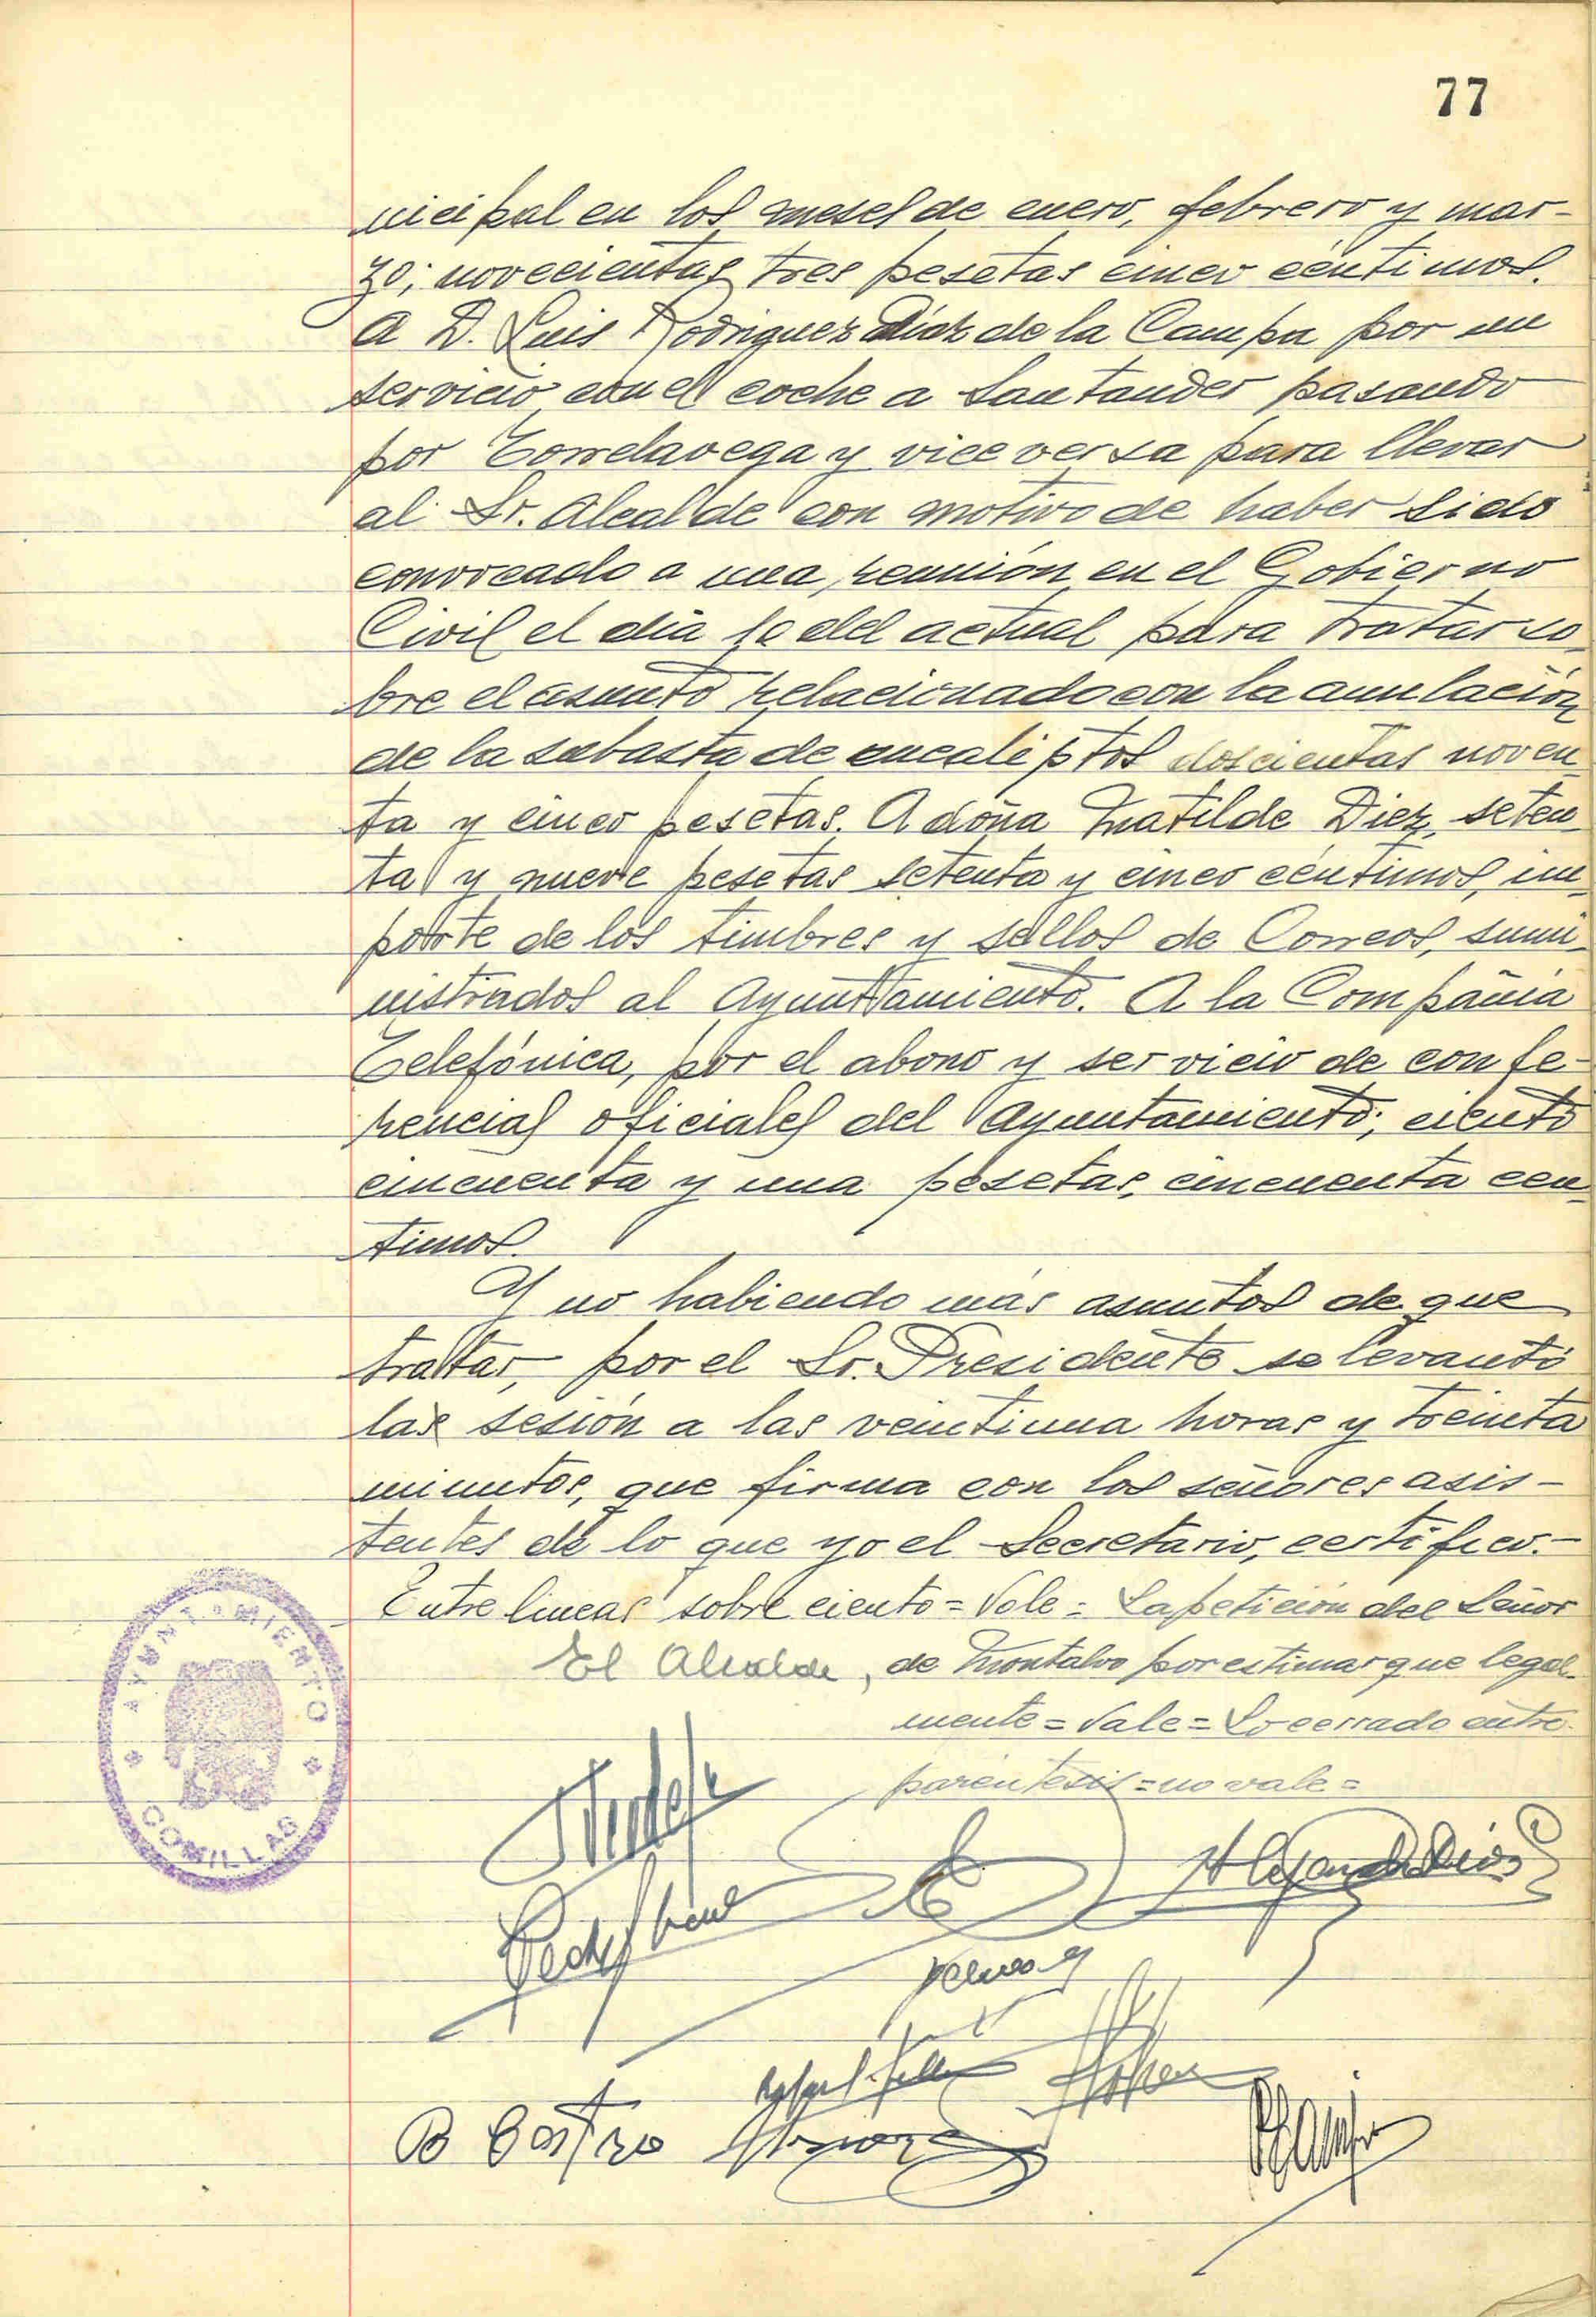 77
nicipal en los meses de enero, febrero y mar-
zo; novecientas tres pesetas cinco céntimos.
A D. Luis Rodriguez Díaz de la Campa por un
servicio con el coche a Santander pasando
por Torrelavega y viceversa para llevar
al Sr. Alcalde con motivo de haber sido
convocado a una reunión en el Gobierno
Civil el día 10 del actual para tratar so-
bre el asunto relacionado con la anulación
de la subasta de eucaliptos doscientas noven-
ta y cinco pesetas. A doña Matilde Diez, seten-
ta y nueve pesetas setenta y cinco céntimos, im-
porte de los timbres y sellos de Correos, sumi-
nistrados al Ayuntamiento. A la Compañia
Telefónica, por el abono y servicio de confe-
rencias oficiales del Ayuntamiento; ciento
cincuenta y una pesetas, cincuenta cen-
timos.
Y no habiendo más asuntos de que
tratar, por el Sr. Presidente se levantó
las sesión a las veintiuna horas y treinta
minutos, que firma con los señores asis-
tentes de lo que yo el Secretario, certifico.-
Entre lineas sobre ciento = Vale = La petición del Señor
El Alcalde, de Montalvo por estimar que legal-
mente = Vale = Lo cerrado entre
parentesis = no vale =
AYUNTAMIENTO
COMILLAS
Alejandro
B Castro